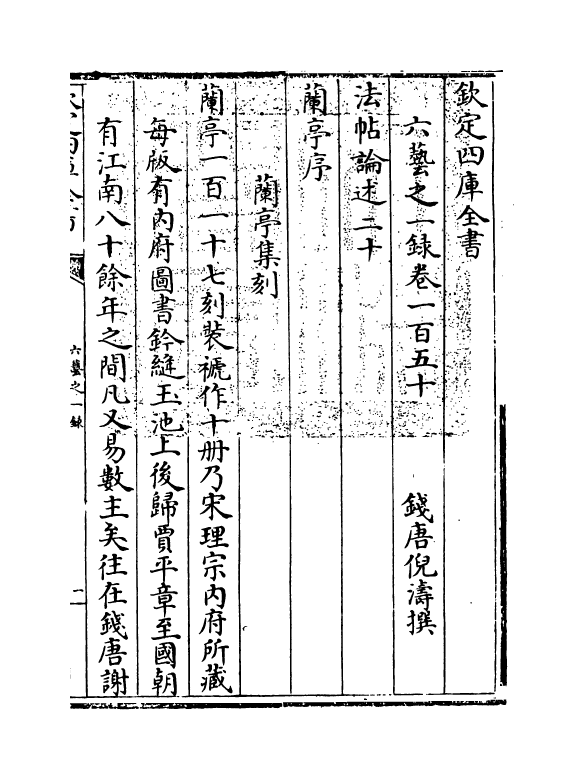 欽定四庫全書
六藝之一録卷一百五十
錢唐倪濤撰
法帖論述二十
蘭亭序
蘭亭集刻
蘭亭一百一十七刻裝褫作十册乃宋理宗内府所藏
每版有内府圖書鈐縫玉池上後歸賈平章至國朝
有江南八十餘年之間凡又易數主矣往在錢唐謝
六藝之一録